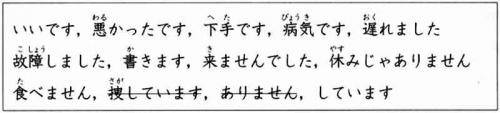 いいです，悪かったです，下手です，病気です，遅れました
故障しました，書きます，来ませんでした，休みじゃありません
食べません，捜しています，ありません，しています